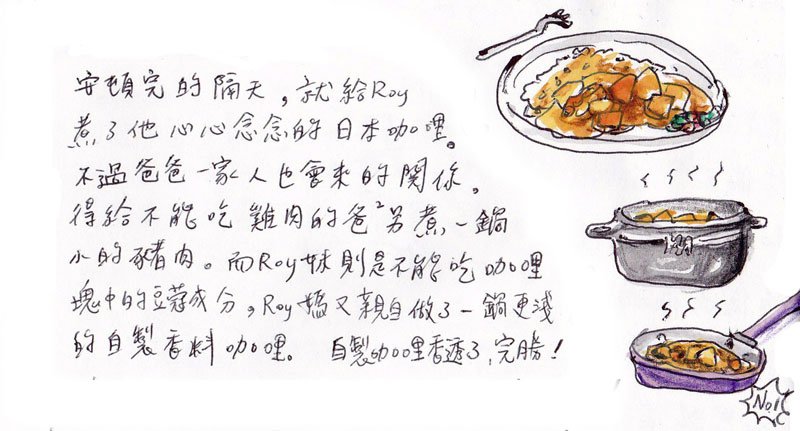 安頓完的隔天，就給Roy
煮了他心心念念的日本咖哩。
不過爸爸一家人也會來的關係，
得給不能吃雞肉的爸²另煮一鍋
小的豬肉。而Roy妹則是不能吃咖哩
塊中的豆蔻成分，Roy媽又親自做了一鍋更淺
的自製香料咖哩。 自製咖哩香透了，完勝！
No1